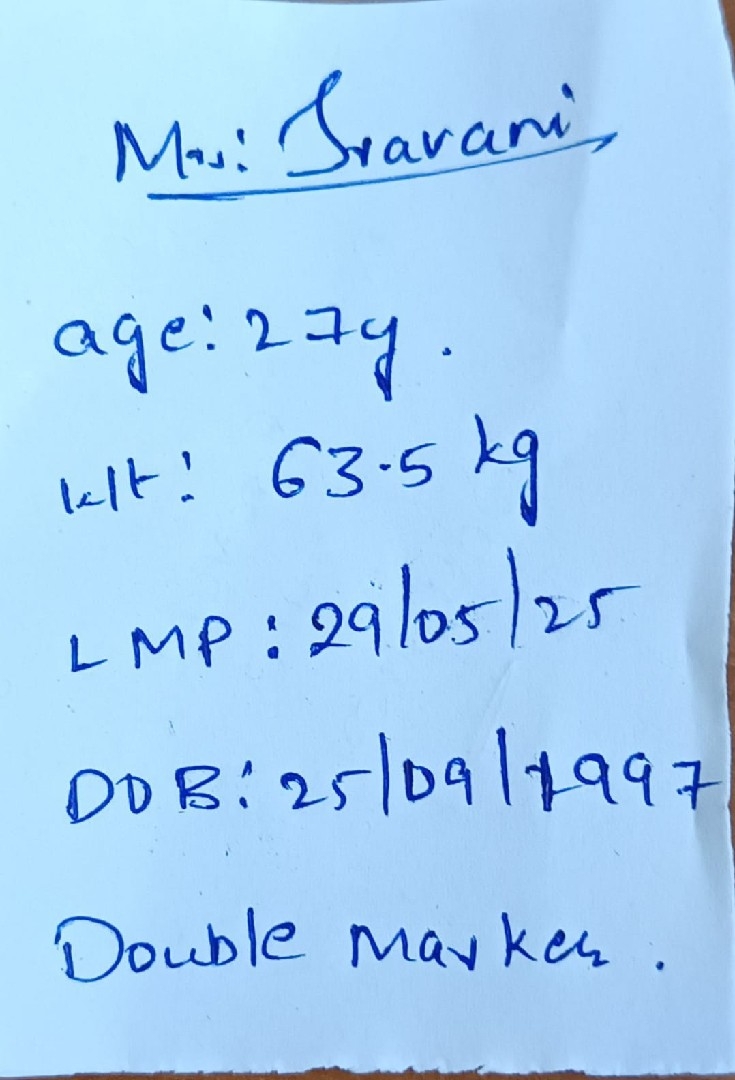 Mrs: Sravani
age: 27y.
Wt: 63.5 kg
LMP: 29/05/25
DOB: 25/09/1997
Double Marker.